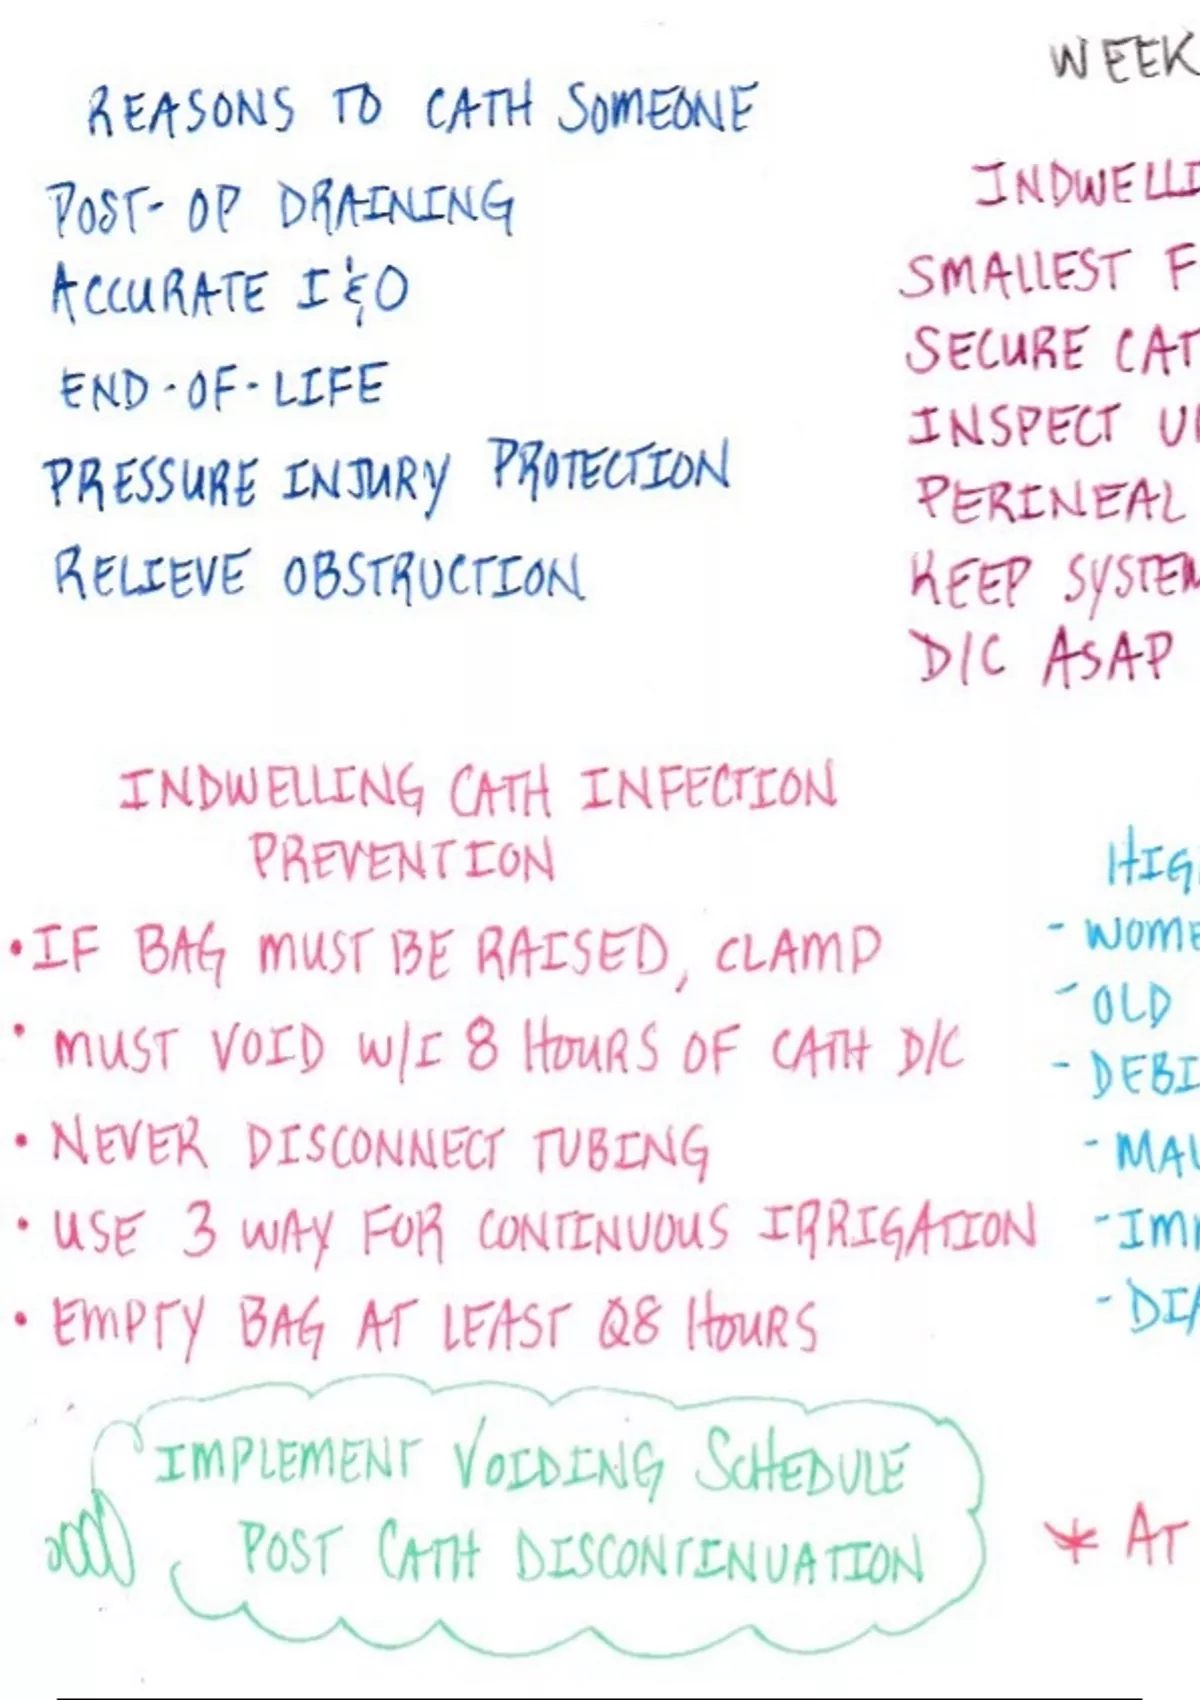 WEEK
REASONS TO CATH SOMEONE
POST-OP DRAINING
ACCURATE I & O
END-OF-LIFE
PRESSURE INJURY PROTECTION
RELIEVE OBSTRUCTION
SMALLEST F
SECURE CAT
INSPECT
PERINEAL
KEEP SYSTEM
D/C ASAP
INDWELLING CATH INFECTION
PREVENTION
• IF BAG MUST BE RAISED, CLAMP
• MUST VOID W/I 8 HOURS OF CATH D/C
• NEVER DISCONNECT TUBING
• USE 3 WAY FOR CONTINUOUS IRRIGATION
• EMPTY BAG AT LEAST Q8 HOURS
- OLD
IMPLEMENT VOIDING SCHEDULE
POST CATH DISCONTINUATION
* AT